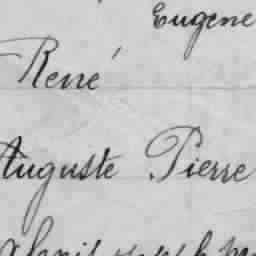 Eugene
René
Auguste Pierre